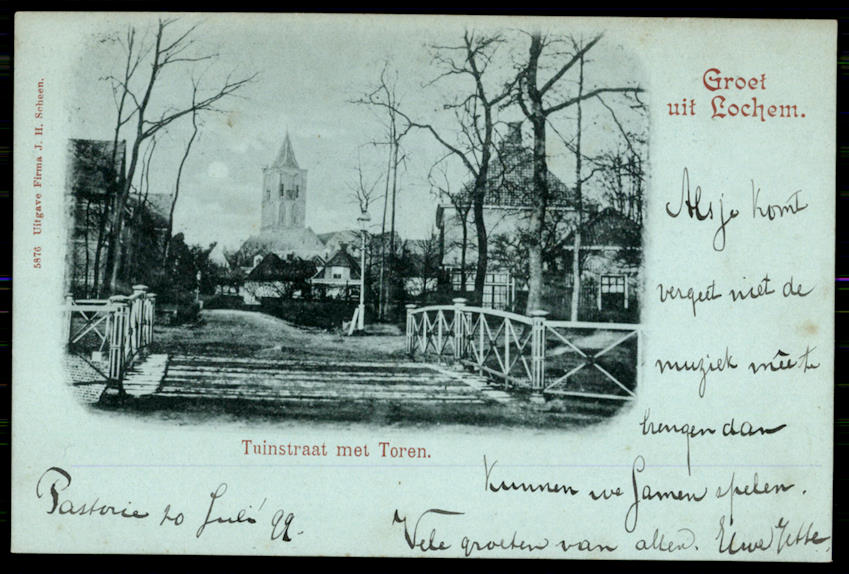 Groet
uit Lochem.
5876 Uitgave Firma J. H. Scheen.
Als je komt
vergeet niet de
muziek mee te
brengen dan
kunnen we samen spelen.
Tuinstraat met Toren.
Pastorie 20 Juli '99.
Vele groeten van allen. Uwe Jette.